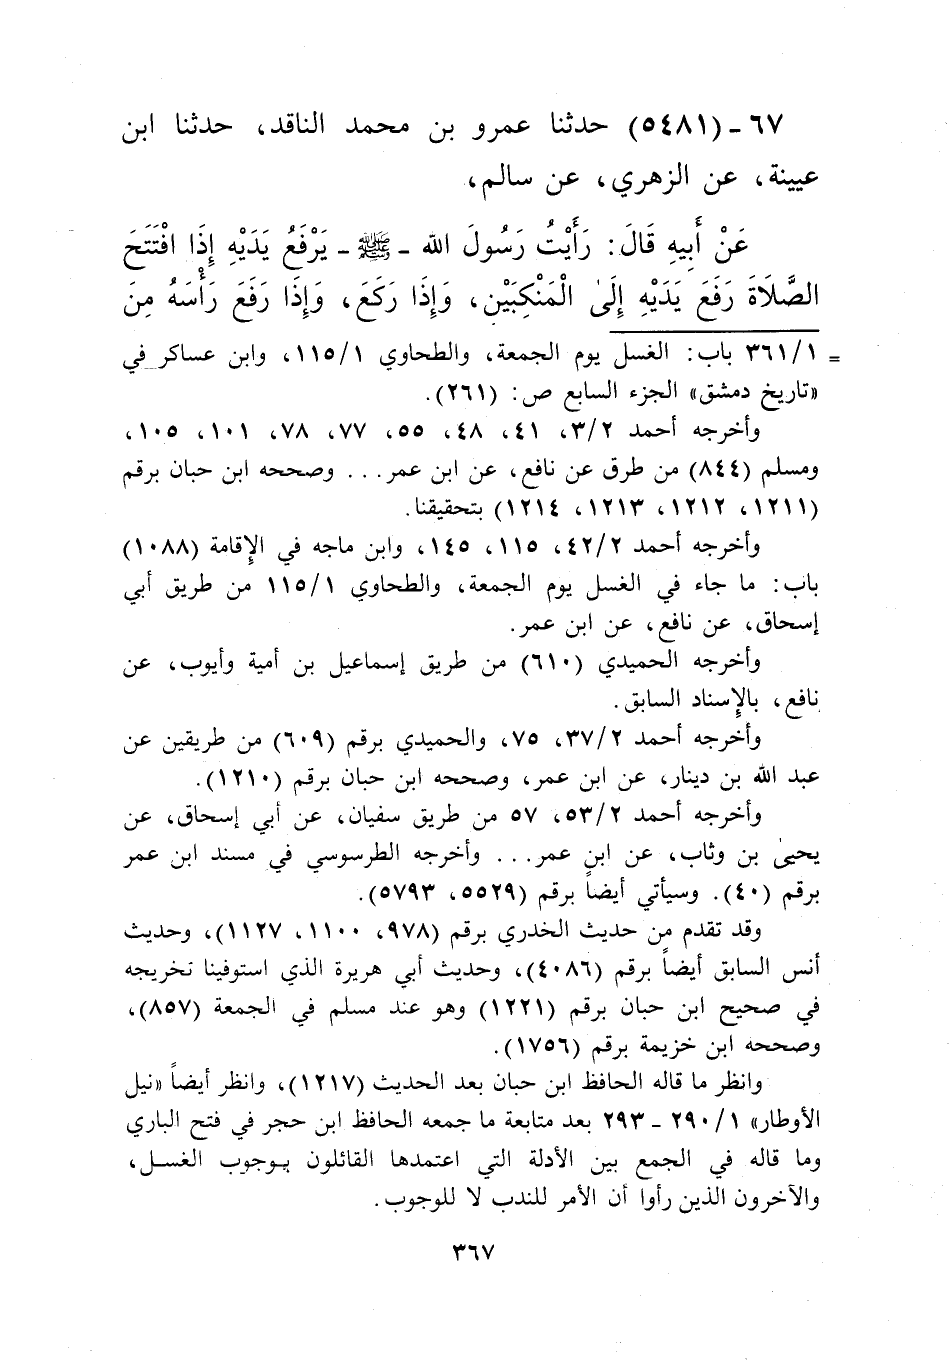 ٦٧ - (٥٤٨١) حدثنا عمرو بن محمد الناقد، حدثنا ابن
عيينة، عن الزهري، عن سالم،
عَنْ أَبِيهِ قَالَ: رَأَيْتُ رَسُولَ الله - ﷺ - يَرْفَعُ يَدَيْهِ إِذَا افْتَتَحَ
الصَّلَاةَ رَفَعَ يَدَيْهِ إِلَىٰ الْمَنْكِبَيْنِ، وَإِذَا رَكَعَ، وَإِذَا رَفَعَ رَأْسَهُ مِنَ
= ٣٦١/١ باب: الغسل يوم الجمعة، والطحاوي ١١٥/١، وابن عساكر في
«تاريخ دمشق» الجزء السابع ص: (٢٦١).
وأخرجه أحمد ٣/٢، ٤١، ٤٨، ٥٥، ٧٧، ٧٨، ١٠١، ١٠٥،
ومسلم (٨٤٤) من طرق عن نافع، عن ابن عمر... وصححه ابن حبان برقم
(١٢١١، ١٢١٢، ١٢١٣، ١٢١٤) بتحقيقنا.
وأخرجه أحمد ٤٢/٢، ١١٥، ١٤٥، وابن ماجه في الإقامة (١٠٨٨)
باب: ما جاء في الغسل يوم الجمعة، والطحاوي ١١٥/١ من طريق أبي
إسحاق، عن نافع، عن ابن عمر.
وأخرجه الحميدي (٦١٠) من طريق إسماعيل بن أمية وأيوب، عن
نافع، بالإسناد السابق.
وأخرجه أحمد ٣٧/٢، ٧٥، والحميدي برقم (٦٠٩) من طريقين عن
عبد الله بن دينار، عن ابن عمر، وصححه ابن حبان برقم (١٢١٠).
وأخرجه أحمد ٥٣/٢، ٥٧ من طريق سفيان، عن أبي إسحاق، عن
يحيىٰ بن وثاب، عن ابن عمر... وأخرجه الطرسوسي في مسند ابن عمر
برقم (٤٠). وسيأتي أيضاً برقم (٥٥٢٩، ٥٧٩٣).
وقد تقدم من حديث الخدري برقم (٩٧٨، ١١٠٠، ١١٢٧)، وحديث
أنس السابق أيضاً برقم (٤٠٨٦)، وحديث أبي هريرة الذي استوفينا تخريجه
في صحيح ابن حبان برقم (١٢٢١) وهو عند مسلم في الجمعة (٨٥٧)،
وصححه ابن خزيمة برقم (١٧٥٦).
وانظر ما قاله الحافظ ابن حبان بعد الحديث (١٢١٧)، وانظر أيضاً «نيل
الأوطار» ٢٩٠/١ - ٢٩٣ بعد متابعة ما جمعه الحافظ ابن حجر في فتح الباري
وما قاله في الجمع بين الأدلة التي اعتمدها القائلون بوجوب الغسل،
والآخرون الذين رأوا أن الأمر للندب لا للوجوب.
٣٦٧